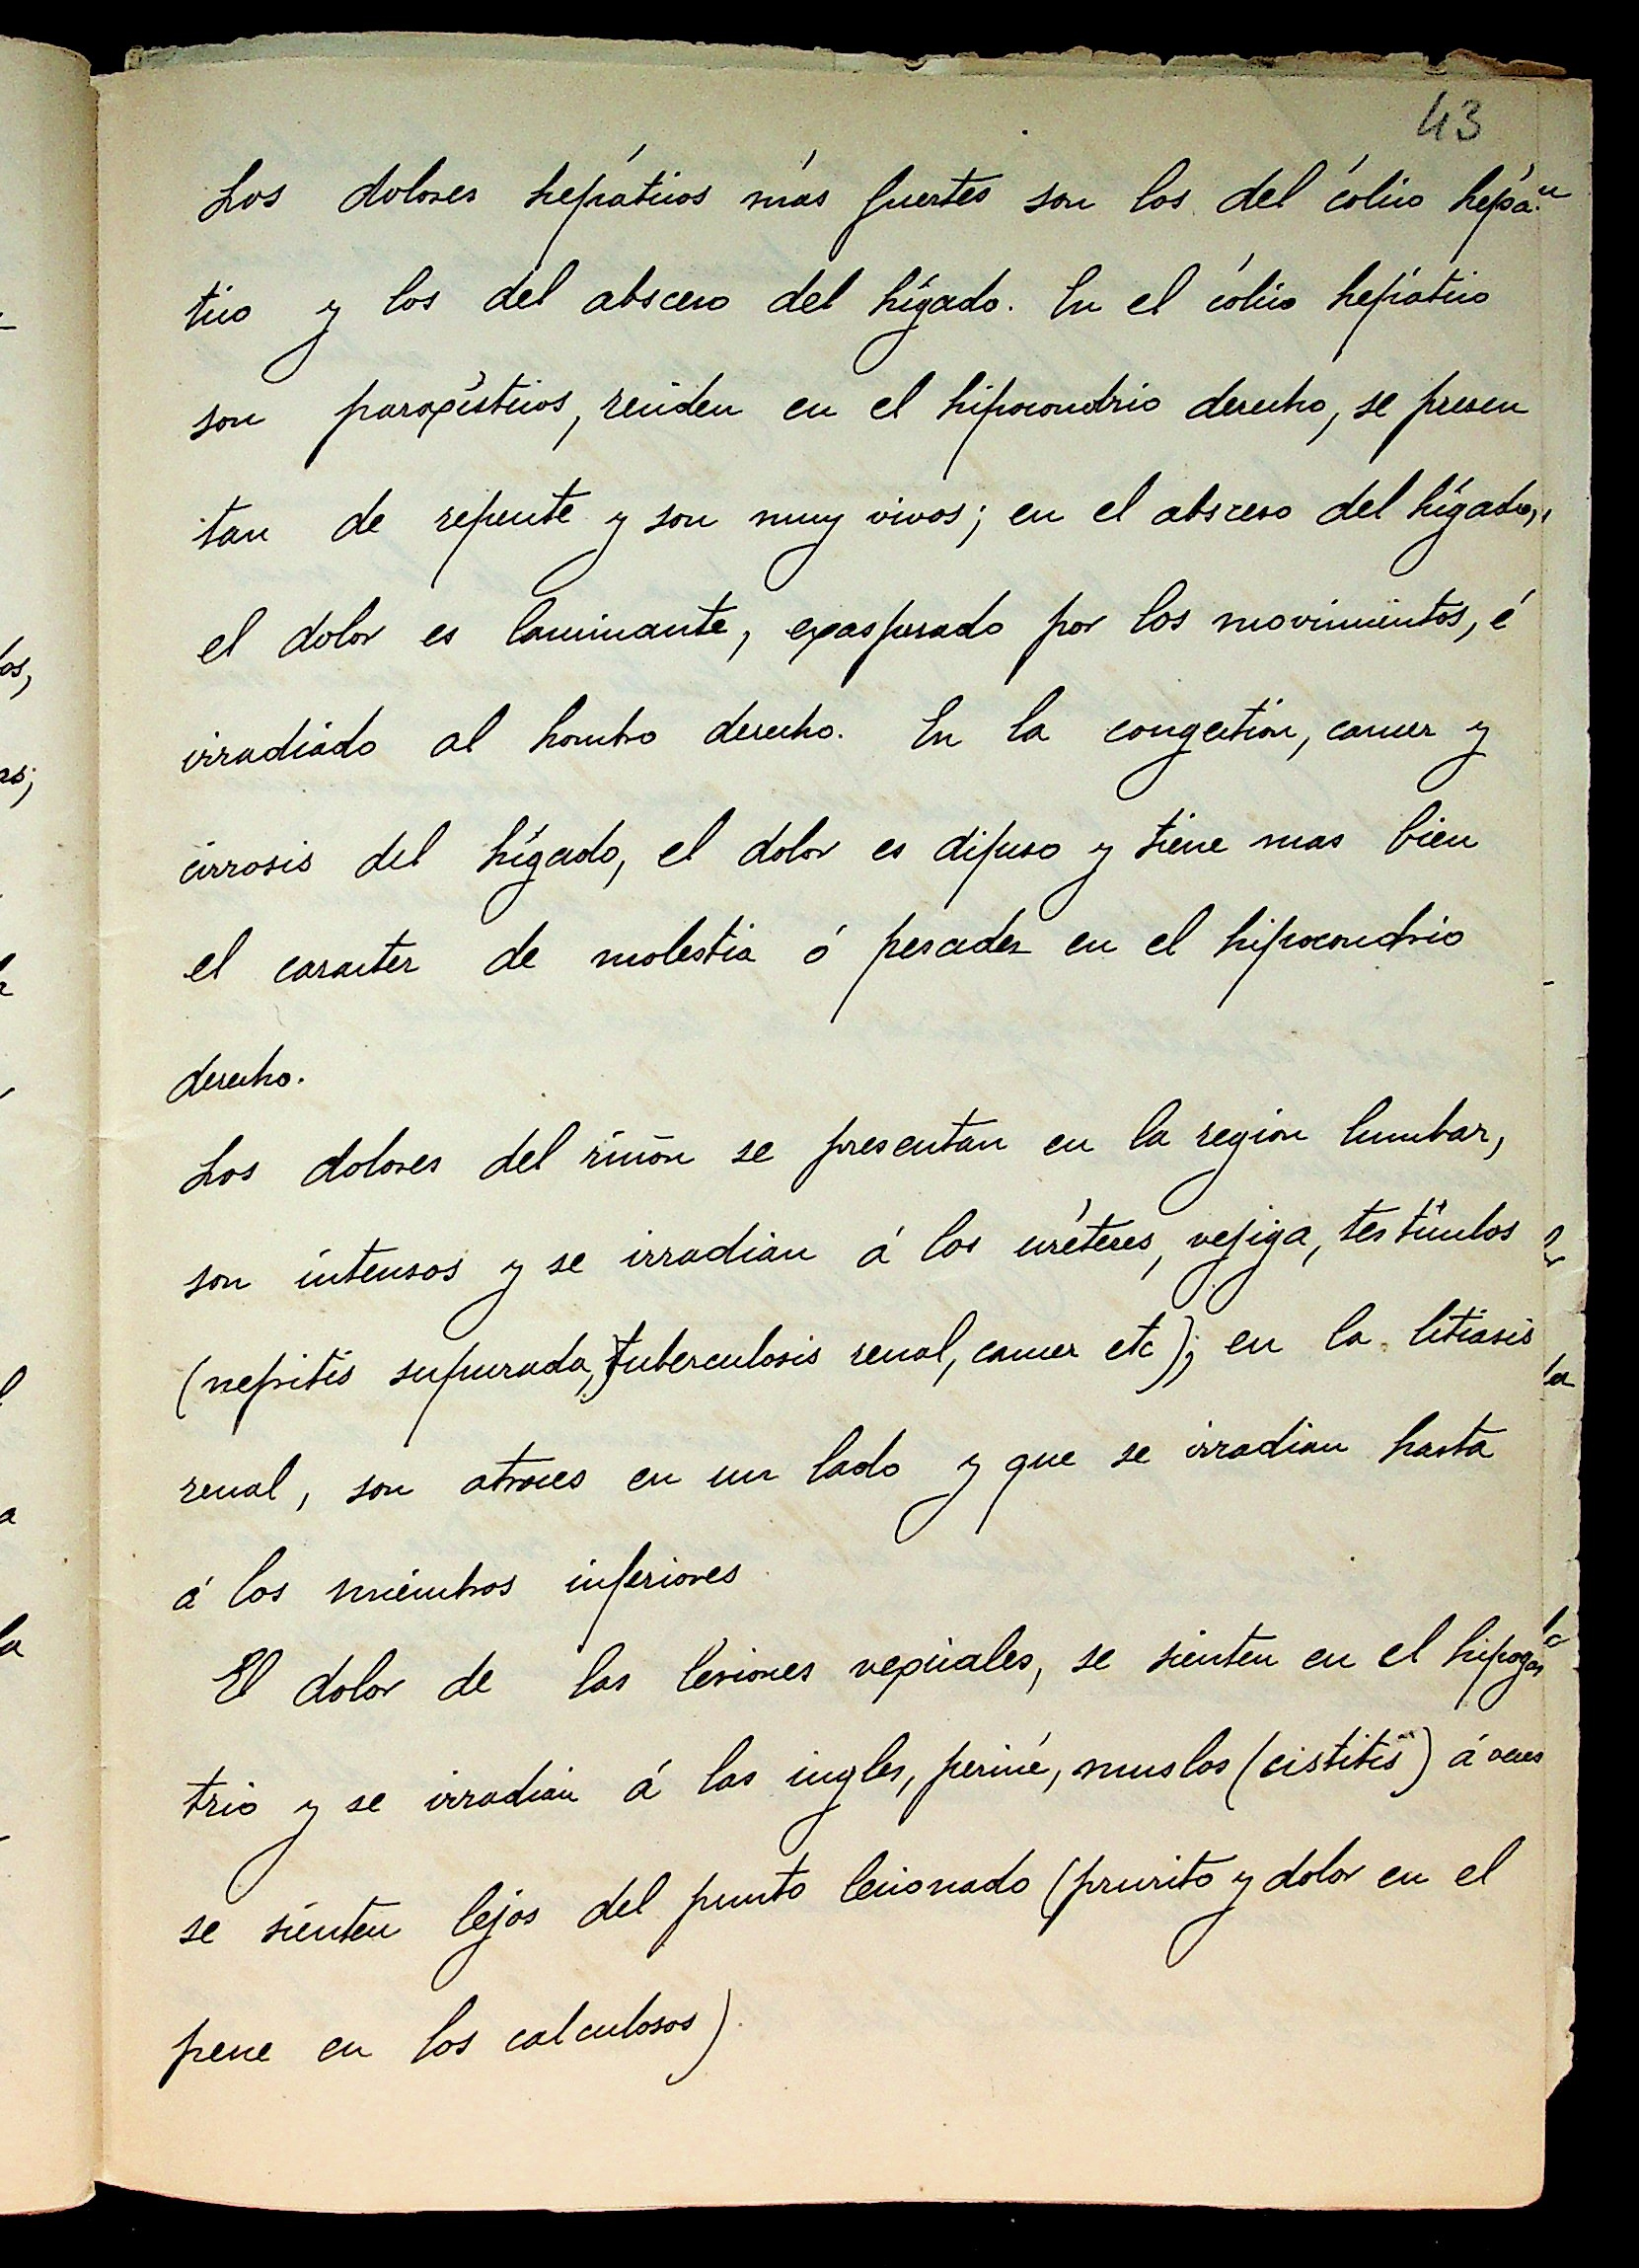 43
Los dolores hepáticos más fuertes son los del cólico hepá-
tico y los del absceso del hígado. En el cólico hepático
son paroxísticos, residen en el hipocondrio derecho, se presen
tan de repente y son muy vivos; en el absceso del hígado,
el dolor es lancinante, exasperado por los movimientos, é
irradiado al hombro derecho. En la congestión, cancer y
cirrosis del hígado, el dolor es difuso y tiene mas bien
el caracter de molestia ó pesadez en el hipocondrio
derecho.
Los dolores del riñón se presentan en la region lumbar,
son intensos y se irradian á los uréteres, vejiga, testículos
(nefritis supurada, tuberculosis renal, cancer etc); en la litiasis
renal, son atroces en un lado y que se irradian hasta
á los miembros inferiores
El dolor de las lesiones vexicales, se sienten en el hipogas
trio y se irradian á las ingles, periné, muslos (cistitis) á veces
se sienten lejos del punto lecionado (prurito y dolor en el
pene en los calculosos).